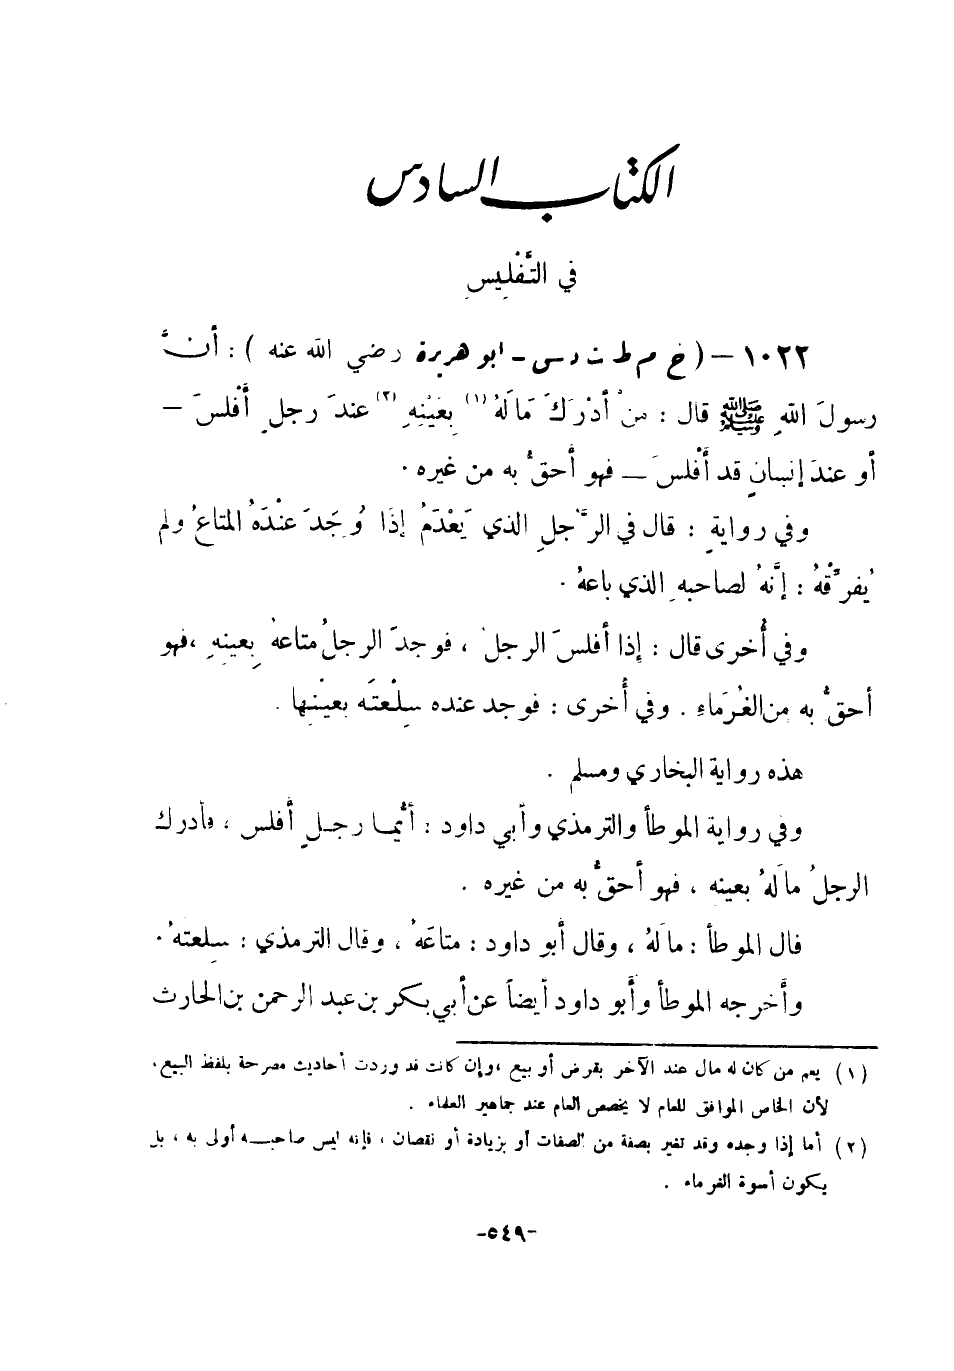 الكتاب السادس
في التَّفْلِيسِ
١٠٢٢ – ( خ م ط ت د س – ابو هريرة رضي الله عنه ) : أنَّ
رسولَ اللهِ ﷺ قال : منْ أدْرَكَ مَالَهُ (١) بِعَيْنِهِ (٢) عندَ رجلٍ أفْلسَ –
أو عندَ إنسانٍ قد أفْلسَ – فهو أحَقُّ به من غيره .
وفي روايةٍ : قال في الرَّجلِ الذي يَعْدَمُ إذَا وُجَدَ عنْدَهُ المتاعُ ولم
يُفرِّقْهُ : إنَّهُ لصاحبهِ الذي باعهُ .
وفي أُخرى قال : إذا أفلسَ الرجلُ ، فوجدَ الرجلُ متاعهُ بِعينهِ ، فهو
أحقُّ به من الغُرَماءِ . وفي أُخرى : فوجد عنده سِلْعتَه بعيْنِها .
هذه رواية البخاري ومسلم .
وفي رواية الموطأ والترمذي وأبي داود : أيُّما رجلٍ أفلس ، فأدرك
الرجلُ مالَهُ بعينه ، فهو أحقُّ به من غيره .
قال الموطأ : مالَهُ ، وقال أبو داود : متاعَهُ ، وقال الترمذي : سِلعتهُ .
وأخرجه الموطأ وأبو داود أيضاً عن أبي بكر بن عبد الرحمن بن الحارث
(١) يعم من كان له مال عند الآخر بقرض أو بيع ، وإن كانت قد وردت أحاديث مصرحة بلفظ البيع ،
لأن الخاص الموافق للعام لا يخصص العام عند جماهير العلماء .
(٢) أما إذا وجده وقد تغير بصفة من الصفات أو بزيادة أو نقصان ، فإنه ليس صاحبه أولى به ، بل
يكون أسوة الغرماء .
–٥٤٩–